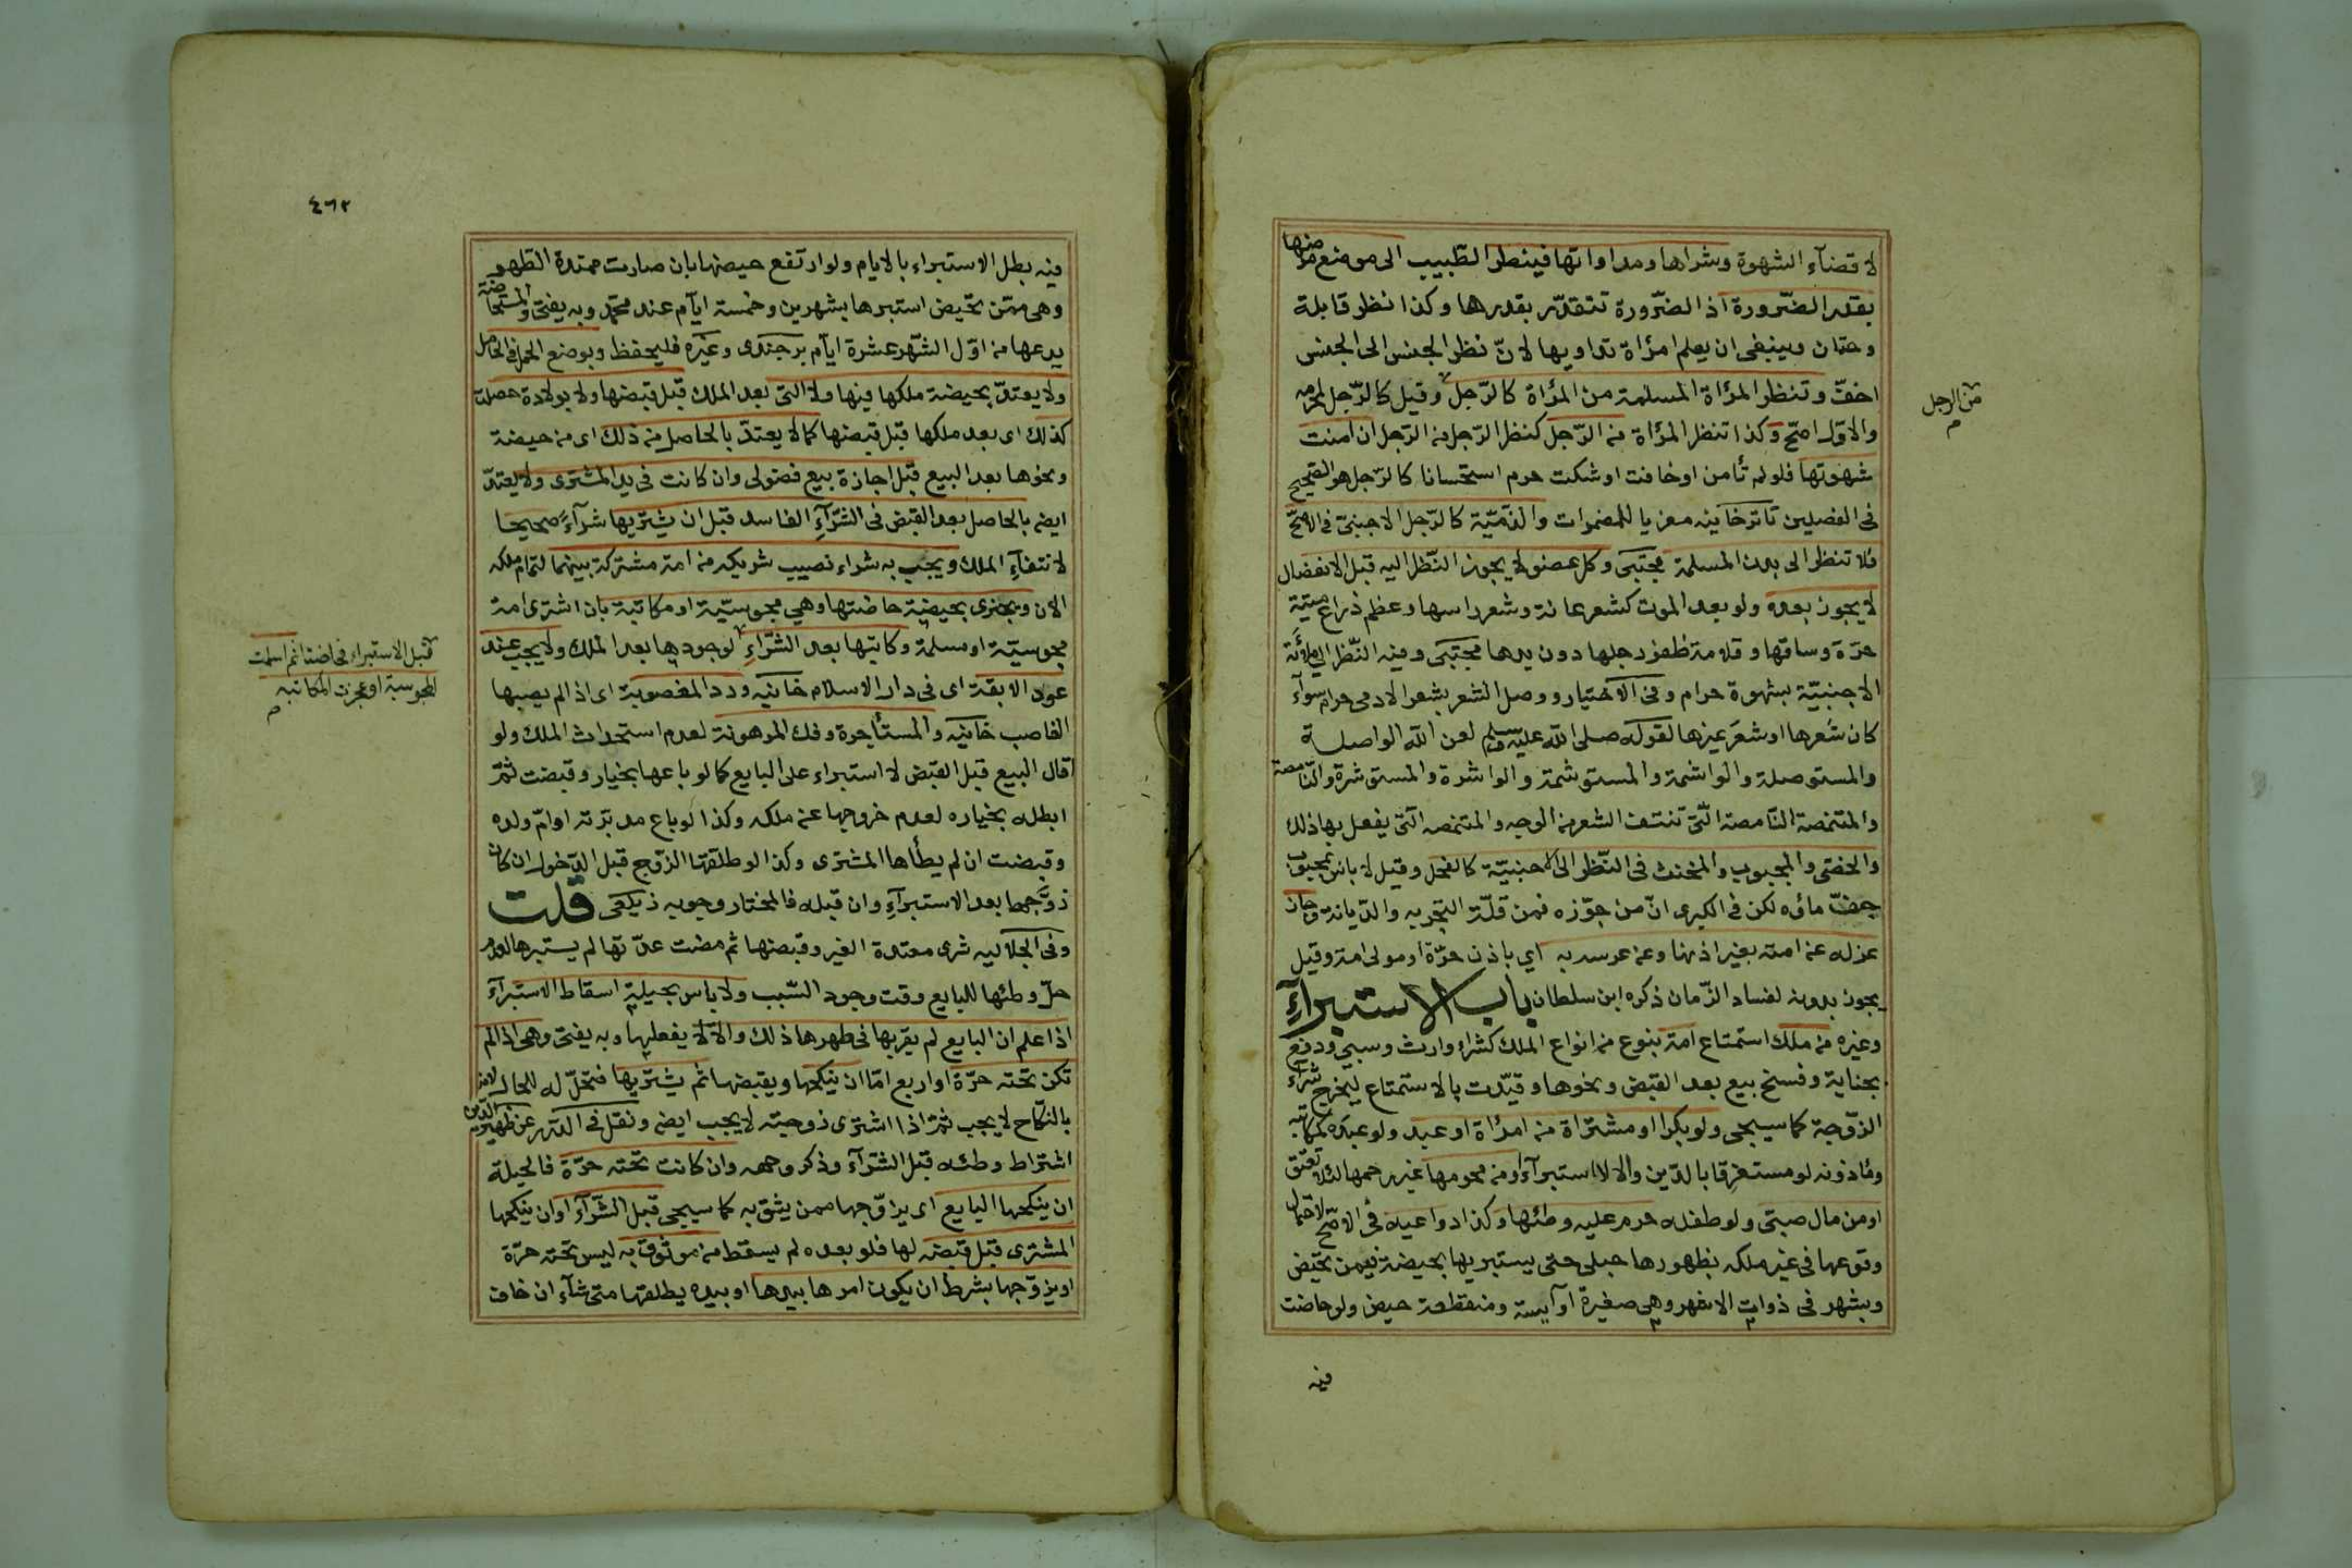 لا قضآء الشهوة وشراها ومداواتها فينظر الطّبيب الى موضع مرضها
بقدر الضّرورة اذ الضّرورة تتقدّر بقدرها وكذا نظر قابلة
وختان وينبغى ان يعلم امرأة تداويها لانّ نظر الجنس الى الجنس
اخفّ وتنظر المرأة المسلمة من المرأة كالرّجل وقيل كالرّجل لمحرمه
من الرجل
م
والاوّل اصحّ وكذا تنظر المرأة من الرّجل كنظر الرّجل من الرّجل ان امنت
شهوتها فلو لم تأمن او خافت او شكت حرم استحسانا كالرّجل هو الصّحيح
فى الفصلين تاترخانيه معزيا للمضمرات والذّمّيّة كالرّجل الاجنبىّ فى الاصحّ
فلا تنظر الى بدن المسلمة مجتبى وكل عضو لا يجوز النّظر اليه قبل الانفصال
لا يجوز بعده ولو بعد الموت كشعر عانة وشعر راسها وعظم ذراع ميتة
حرّة وساقها وقلامة ظفر رجلها دون يدها مجتبى وفيه النّظر الى ملائة
الاجنبيّة بشهوة حرام وفى الاختيار ووصل الشعر بشعر الادمى حرام سوآء
كان شعرها او شعر غيرها لقوله صلى الله عليه وسلم لعن الله الواصلة
والمستوصلة والواشمة والمستوشمة والواشرة والمستوشرة والنّامصة
والمتنمصة النّامصة الّتى تنتف الشعر من الوجه والمتنمصه الّتى يفعل بها ذلك
والخصى والمجبوب والمخنث فى النّظر الى الاجنبيّة كالفحل وقيل لا باس بمجبوب
جفّ ماؤه لكن فى الكبرى انّ من جوّزه فمن قلّة التّجربه والدّيانة وجاز
عزله عن امته بغير اذنها وعن عرسه به اي باذن حرّة او مولى امة وقيل
يجوز بدونه لفساد الزّمان ذكره ابن سلطان باب الاستبرآءِ
وغيره من ملك استمتاع امة بنوع من انواع الملك كشراء وارث وسبي ودفع
بجناية وفسخ بيع بعد القبض ونحوها وقيّدت بالاستمتاع ليخرج شرآء
الزّوجة كما سيجى ولو بكرا او مشتراة من امرأة او عبد ولو عبده كمكاتبه
ومأذونه لو مستغرقا بالدّين والا لا استبرآء او من محرمها غير رحمها لئلا تعتق
او من مال صبىّ ولو طفله حرم عليه وطئها وكذا دواعيه فى الاصحّ لاحتمال
وقوعها فى غير ملكه بظهورها حبلى حتى يستبريها بحيضة فيمن تحيض
وبشهر فى ذوات الاشهر وهى صغيرة او آيسة ومنقطعة حيض ولو حاضت
فيه
٤٦٢
فيه بطل الاستبراء بالايام ولو ارتفع حيضها بان صارت ممتدة الطّهر
وهى ممّن تحيض استبرها بشهرين وخمسة ايّام عند محمّد وبه يفتى والمستحاضة
يدعها من اوّل الشّهر عشرة ايّام برجندى وغيره فليحفظ وبوضع الحمل فى الحامل
ولا يعتدّ بحيضة ملكها فيها ولا الّتى بعد الملك قبل قبضها ولا بولادة حصلت
كذلك اى بعد ملكها قبل قبضها كما لا يعتدّ بالحاصل من ذلك اى من حيضة
ونحوها بعد البيع قبل اجازة بيع فضولى وان كانت فى يد المشترى ولا يعتدّ
ايضا بالحاصل بعد القبض فى الشّرآءِ الفاسد قبل ان يشتريها شرآءً صحيحا
لانتفآءِ الملك ويجب به شراء نصيب شريكه من امة مشتركة بينهما لتمام ملكه
الان ويجتزى بحيضة حاضتها وهي مجوسيّة او مكاتبة بان اشترى امة
مجوسيّة او مسلمة وكاتبها بعد الشّراءِ لوجودها بعد الملك ولا يجب عند
قبل الاستبراء فحاضتا ثم اسلمت
المجوسية او عجزت المكاتبه
م
عود الابقة اى فى دار الاسلام خانيه ورد المغصوبة اى اذا لم يصبها
الغاصب خانيه والمستأجرة وفك المرهونة لعدم استحداث الملك ولو
اقال البيع قبل القبض لا استبراء على البايع كما لو باعها بخيار وقبضت ثمّ
ابطله بخياره لعدم خروجها عن ملكه وكذا لو باع مدبرته او امّ ولده
وقبضت ان لم يطأها المشترى وكذا لو طلقها الزّوج قبل الدّخول ان كان
زوّجها بعد الاستبرآءِ وان قبله فالمختار وجوبه زيلعى قلت
وفى الجلاليه شرى معتدة الغير وقبضها ثم مضت عدّتها لم يستبرها لعدم
حلّ وطئها للبايع وقت وجود السّبب ولا باس بحيلة اسقاط الاستبرآء
اذا علم ان البايع لم يقربها فى طهرها ذلك والّا لا يفعلها وبه يفتى وهى اذا لم
تكن تحته حرّة او اربع امّا ان ينكحها ويقبضها ثم يشتريها فتحلّ له للحال لانه
بالنكاح لا يجب ثمّ اذا اشترى زوجته لا يجب ايضا ونقل فى الدّرر عن ظهير الدّين
اشتراط وطئه قبل الشّرآء وذكر وجهه وان كانت تحته حرّة فالحيلة
ان ينكحها البايع اى يزوّجها ممن يثق به كما سيجى قبل الشّرآءِ او ان ينكحها
المشترى قبل قبضه لها فلو بعده لم يسقط من موثوق به ليس تحته حرّة
او يزوّجها بشرط ان يكون امرها بيدها او بيده يطلقها متى شآء ان خاف